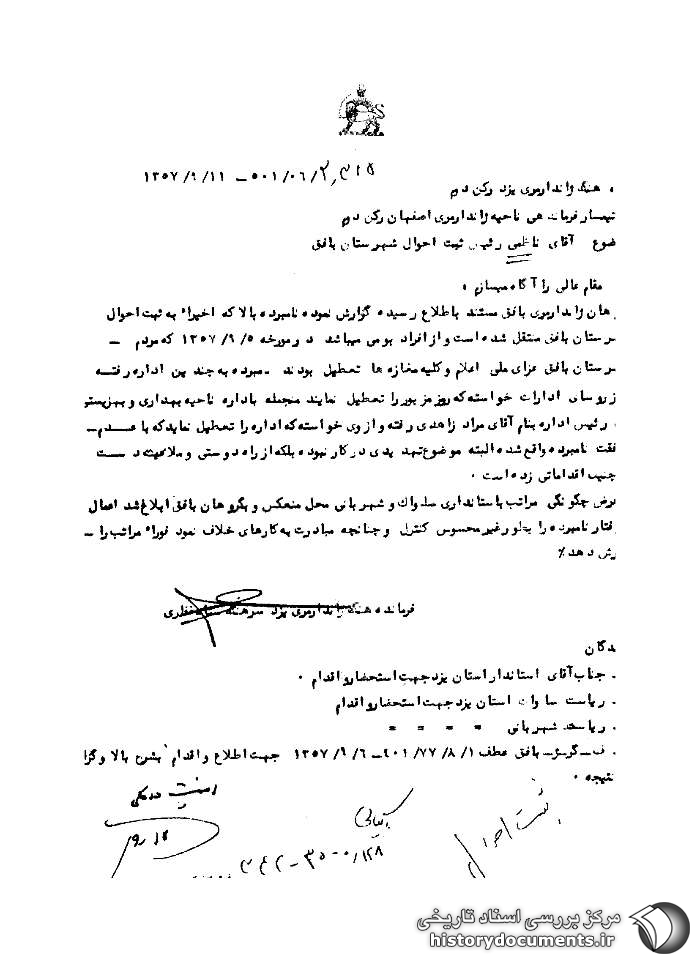 ۵۰۱/۰۶/۲,۳۱۵ – ۱۳۵۷/۹/۱۱
ه هنگ ژاندارمری یزد رکن دوم
تیمسار فرماندهی ناحیه ژاندارمری اصفهان رکن دوم
ضوع آقای ناظمی رئیس ثبت احوال شهرستان بافق
مقام عالی را آگاه میسازم :
هان ژاندارمری بافق مستند باطلاع رسیده گزارش نموده نامبرده بالا که اخیراً به ثبت احوال
رستان بافق منتقل شده است و از افراد بومی میباشد در مورخه ۱۳۵۷/۹/۵ که مردم –
رستان بافق عزای ملی اعلام و کلیه مغازه ها تعطیل بودند نامبرده به چندین اداره رفته
ز روسای ادارات خواسته که روز مزبور را تعطیل نمایند منجمله باداره ناحیه بهداری و بهزیستی
رئیس اداره بنام آقای مراد زاهدی رفته و از وی خواسته که اداره را تعطیل نماید که با عدم –
فقت نامبرده واقع شده البته موضوع تهدیدی در کار نبوده بلکه از راه دوستی و ملایمت دست
چنین اقداماتی زده است ۰
عرض چگونگی مراتب باستانداری ساواک و شهربانی محل منعکس و بگروهان بافق ابلاغ شد اعمال
فتار نامبرده را بطور غیر محسوس کنترل و چنانچه مبادرت به کارهای خلاف نمود فوراً مراتب را –
رش دهد٪
فرمانده هنگ ژاندارمری یزد سرهنگ
ندگان
جناب آقای استاندار استان یزد جهت استحضار و اقدام ۰
ریاست ساواک استان یزد جهت استحضار و اقدام
ریاست شهربانی = = = =
ف – گرسژ – بافق عطف ۴۰۱/۷۷/۸/۱ – ۱۳۵۷/۹/۶ جهت اطلاع و اقدام بشرح بالا و گزا
نتیجه ۰
ثبت احوال
مرکز بررسی اسناد تاریخی
historydocuments.ir